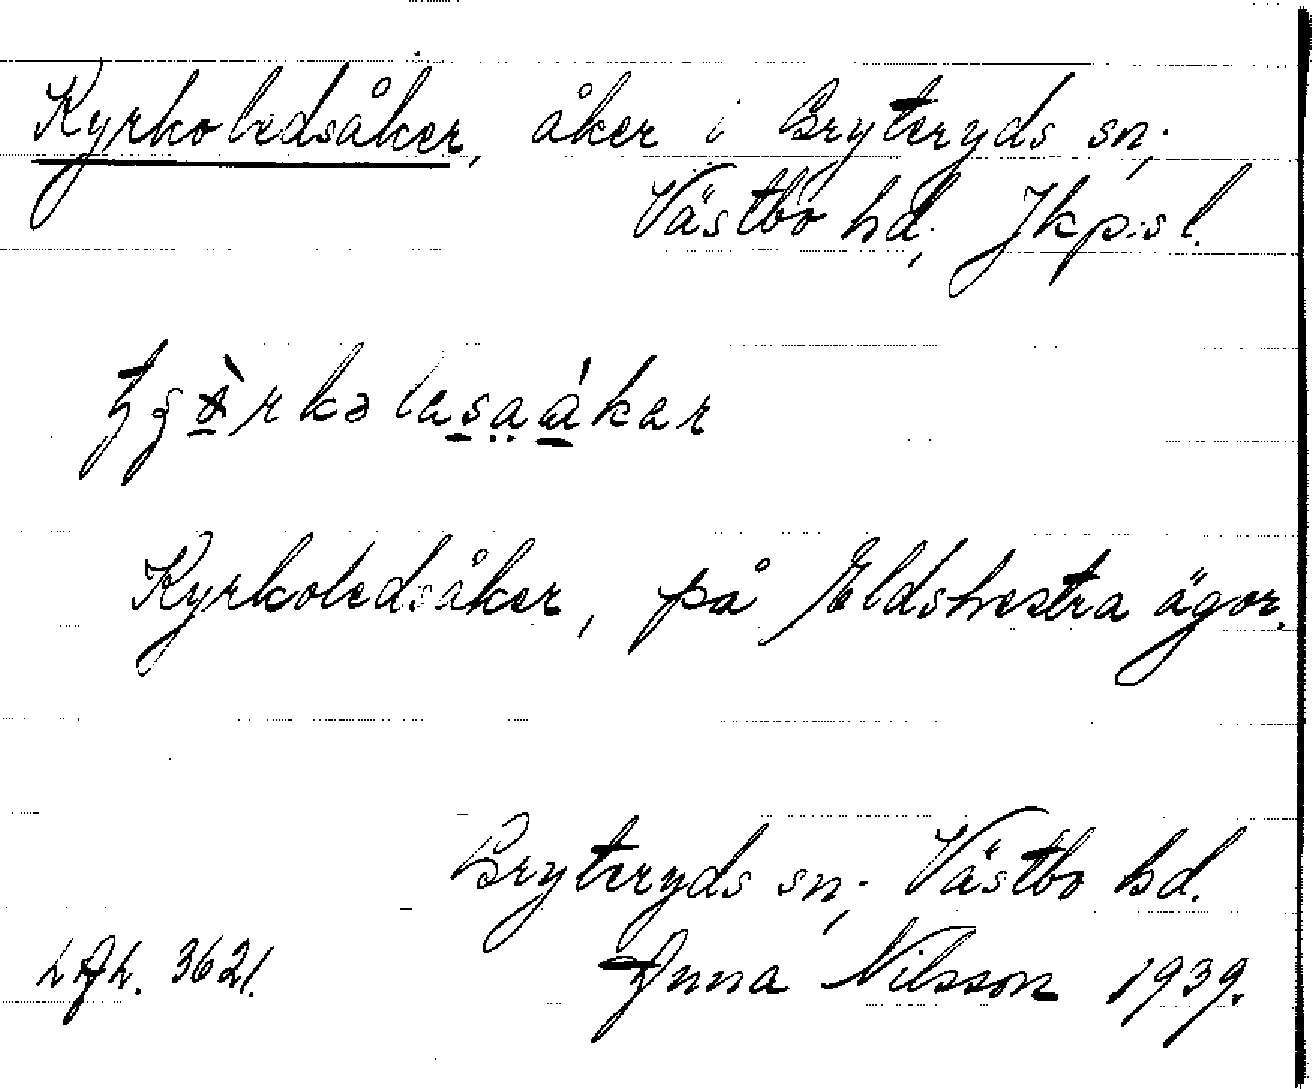 Kyrkoledsåker, åker i Bryteryds sn.,
Västbo hd., Jkp:s l.
Kyrkoledsåker, på Eldshestra ägor.
Bryteryds sn., Västbo hd.
3621. Anna Nilsson 1939.